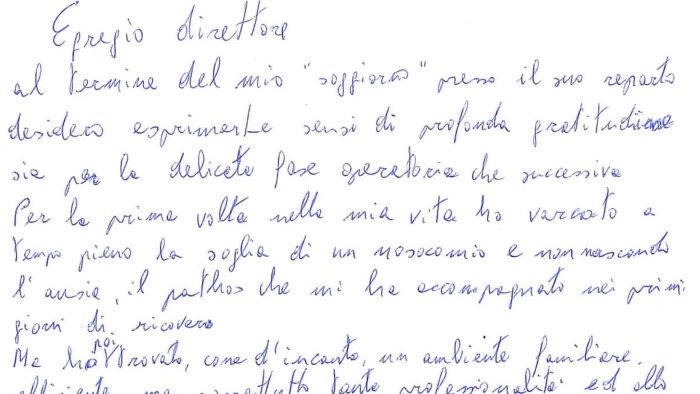 Egregio direttore
al termine del mio "soggiorno" presso il suo reparto
desidero esprimerLe sensi di profonda gratitudine
sia per la delicata fase operatoria che successiva
Per la prima volta nella mia vita ho varcato a
tempo pieno la soglia di un nosocomio e non nascondo
l'ansia, il pathos che mi ha accompagnato nei primi
giorni di ricovero
Ma ho poi trovato, come d'incanto, un ambiente familiare,
efficiente ma soprattutto tanta professionalità ed allo